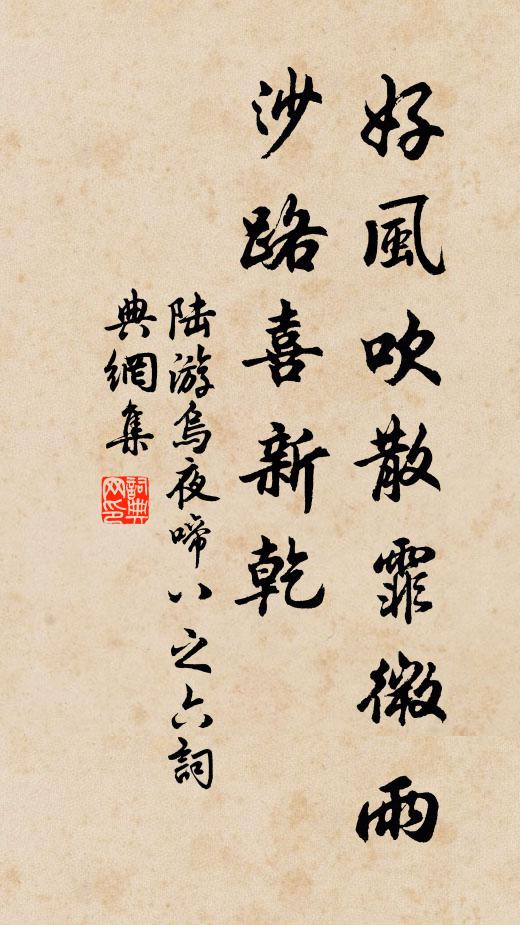 好風吹散霏微雨
沙路喜新乾
陸游烏夜啼八之六詞
典網集
詞典網印